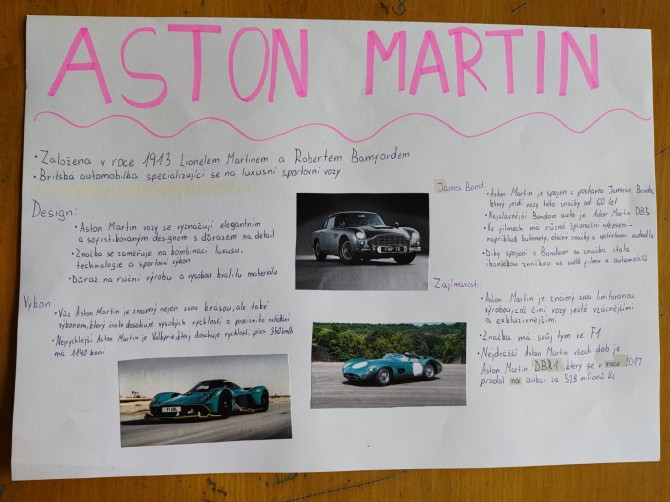 ASTON MARTIN
• Založena v roce 1913 Lionelem Martinem a Robertem Bamfordem
• Britská automobilka specializující se na luxusní sportovní vozy
Design:
• Aston Martin vozy se vyznačují elegantním
a sofistikovaným designem s důrazem na detail
• Značka se zaměřuje na kombinaci luxusu,
technologie a sportovní výkon
• Důraz na ruční výrobu a vysokou kvalitu materialu
Výkon:
• Vůz Aston Martin je znamý nejen svou krásou, ale také
výkonem, který často dosahuje vysokých rychlostí a precizního ovládání
• Nejrychlejší Aston Martin je Valkyrie, který dosahuje rychlosti přes 350 km/h
má 1140 koní
James Bond:
• Aston Martin je spojen s postavou Jamese Bonda,
který jezdí vozy této značky od 60 let
• Nejslavnější Bondovo auto je Aston Martin DB5
• Ve filmech má různá špionážní vylepšení-
například kulomety, otočné značky a vystřelovací sedadla
• Díky spojení s Bondem se značka stala
ikonickou značkou ve světě filmu a automobilů
Zajímavosti:
• Aston Martin je známý svou limitovanou
výrobou, což činí vozy ještě vzácnějšími
a exkluzivnějšími
• Značka má svůj tym ve F1
• Nejdražší Aston Martin všech dob je
Aston Martin DBR1, který se v roce 2017
prodal na aukci za 528 milionů Kč